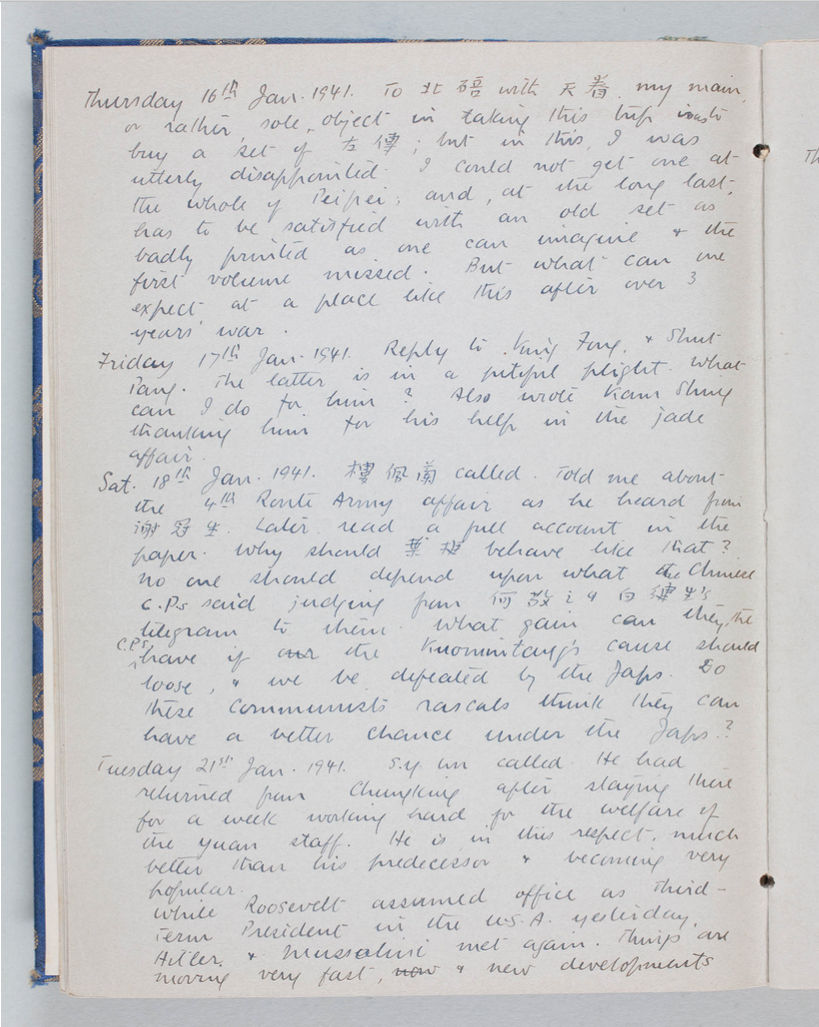 Thursday 16th Jan. 1941. To 北碚 with 天眷. My main,
or rather, sole, object in taking this trip was to
buy a set of 左傳; but in this, I was
utterly disappointed. I could not get one at
the whole of Peipei; and, at the long last,
has to be satisfied with an old set as
badly printed as one can imagine & the
first volume missed. But what can one
expect at a place like this after over 3
years' war.
Friday 17th Jan. 1941. Reply to King Fong. & Shut
Pang. The latter is in a pitiful plight. What
can I do for him? Also wrote Kam Shing
thanking him for his help in the jade
affair.
Sat. 18th Jan. 1941. 樓佩蘭 called. Told me about
the 4th Route Army affair as he heard from
謝冠生. Later read a full account in the
paper. Why should 葉挺 behave like that?
No one should depend upon what the Chinese
C.Ps said judging from 何敬之 & 白健生's
telegram to them. What gain can they, the
C.Ps, have if our the Kuomintang's cause should
loose, & we be defeated by the Japs. Do
these communists rascals think they can
have a better chance under the Japs?
Tuesday 21st Jan. 1941. S.Y. called. He had
returned from Chungking after staying there
for a week working hard for the welfare of
the Yuan staff. He is, in this respect, much
better than his predecessor & becoming very
popular.
While Roosevelt assumed office as Third-
Term President in the U.S.A. yesterday,
Hitler & Mussolini met again. Things are
moving very fast, now & new developments